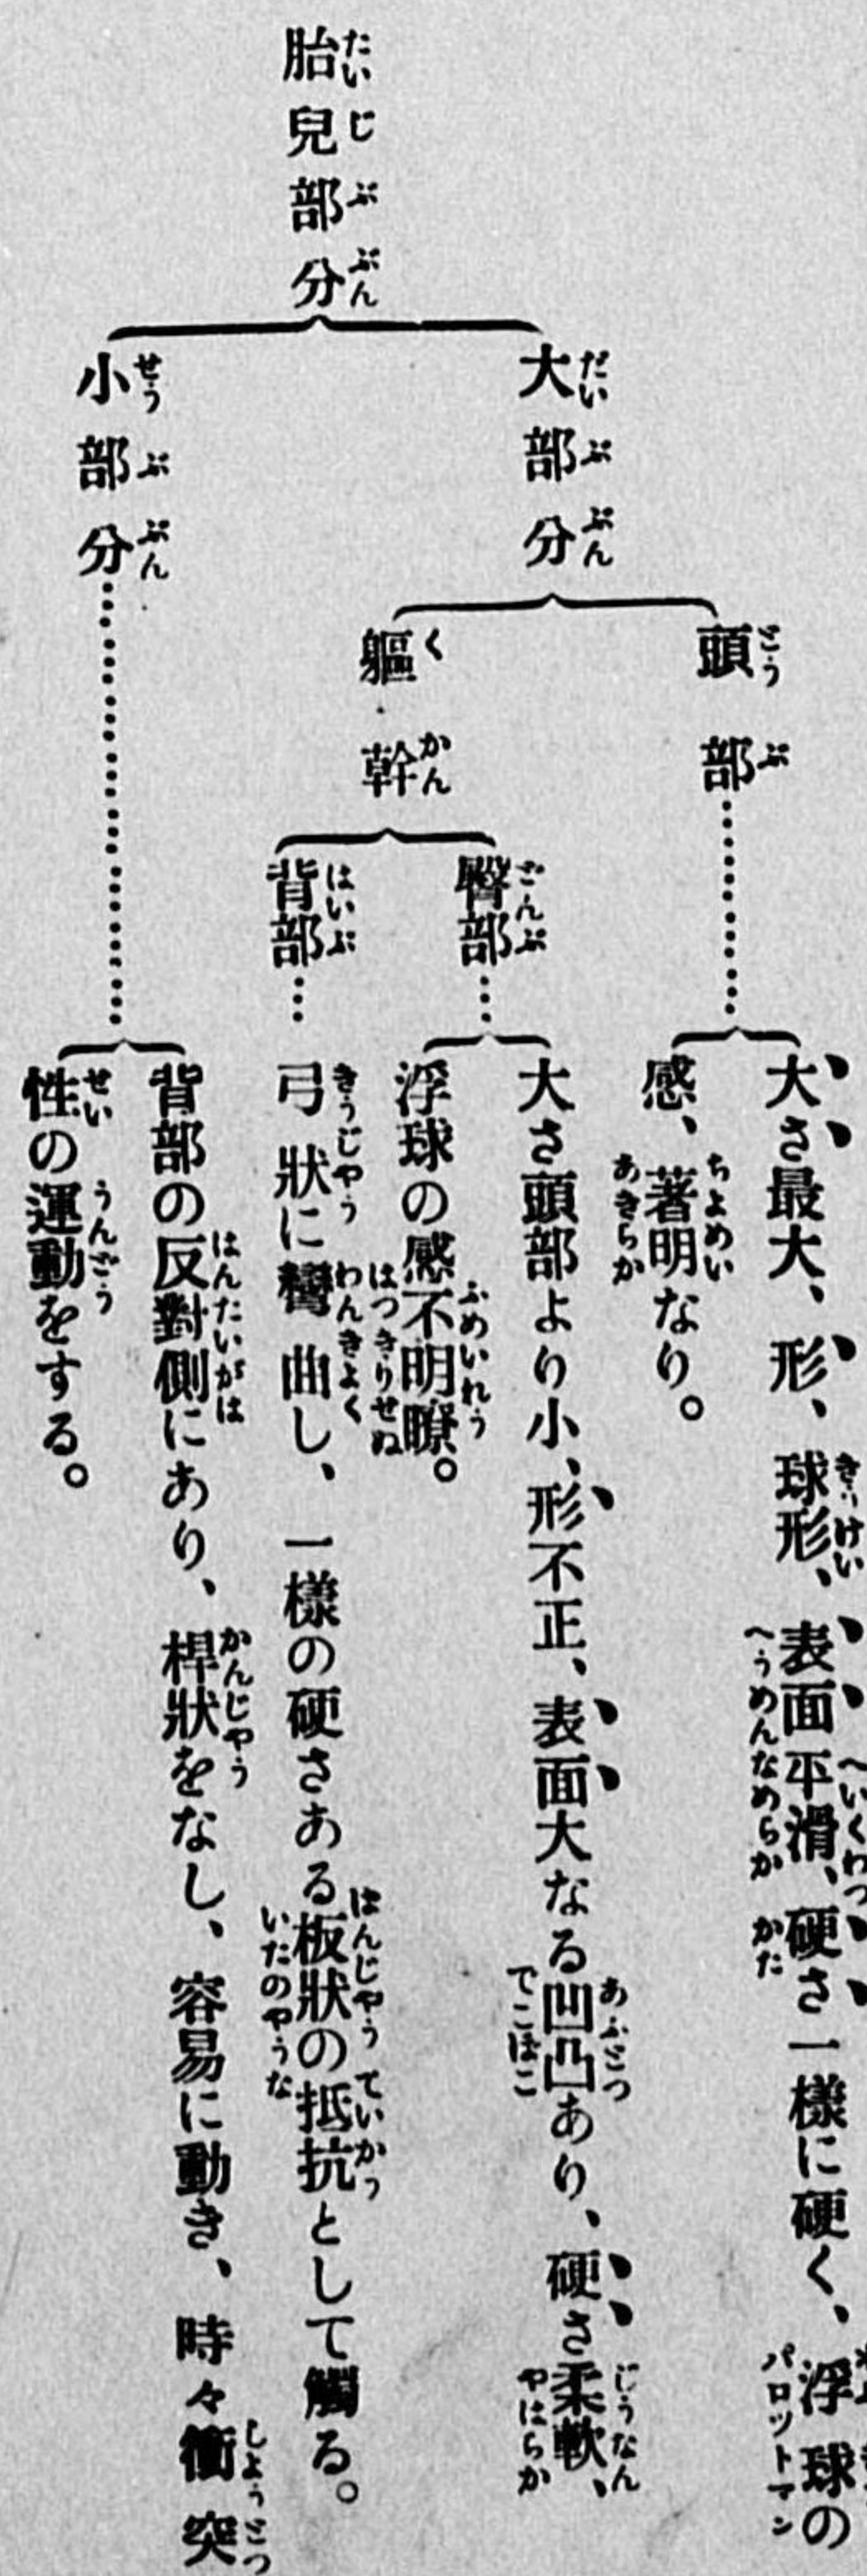 胎兒部分
大部分
頭部
大さ最大、形、球形、表面平滑、硬さ一樣に硬く、浮球の
感、著明なり。
軀幹
臀部
大さ頭部より小、形不正、表面大なる凹凸あり、硬さ柔軟、
浮球の感不明瞭。
背部
弓狀に彎曲し、一樣の硬さある板狀の抵抗として觸る。
小部分
背部の反對側にあり、桿狀をなし、容易に動き、時々衝突
性の運動をする。